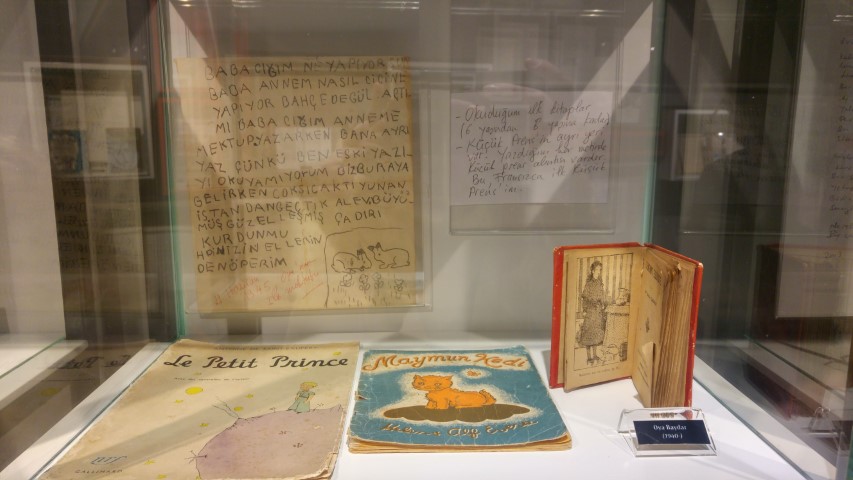 BABACIĞIM NE YAPIYOR
BABA ANNEM NASIL CİCİ
YAPIYOR BAHÇEDE GÜL AÇTI
MI BABACIĞIM ANNEME
MEKTUP YAZARKEN BANA AYRI
YAZ ÇÜNKÜ BEN ESKİ YAZI-
YI OKUYAMIYORUM BİZ BURAYA
GELİRKEN ÇOK SICAKTI YUNAN
İSTANDAN GEÇTİK ALEV BÜYÜ-
MÜŞ GÜZELLEŞMİŞ ÇADIRI
KURDUNMU
HEPİNİZİN ELLERİN
DEN ÖPERİM
- Okuduğum ilk kitaplar
(6 yaşından 8 yaşına kadar)
- Küçük Prens'in ayrı yeri
var. Yazdığım her metinde
küçük prens vardır.
Bu, Fransızca ilk Küçük
Prens'im.
Le Petit Prince
GALLIMARD
Maymun Kedi
Oya Baydar
(1940-)